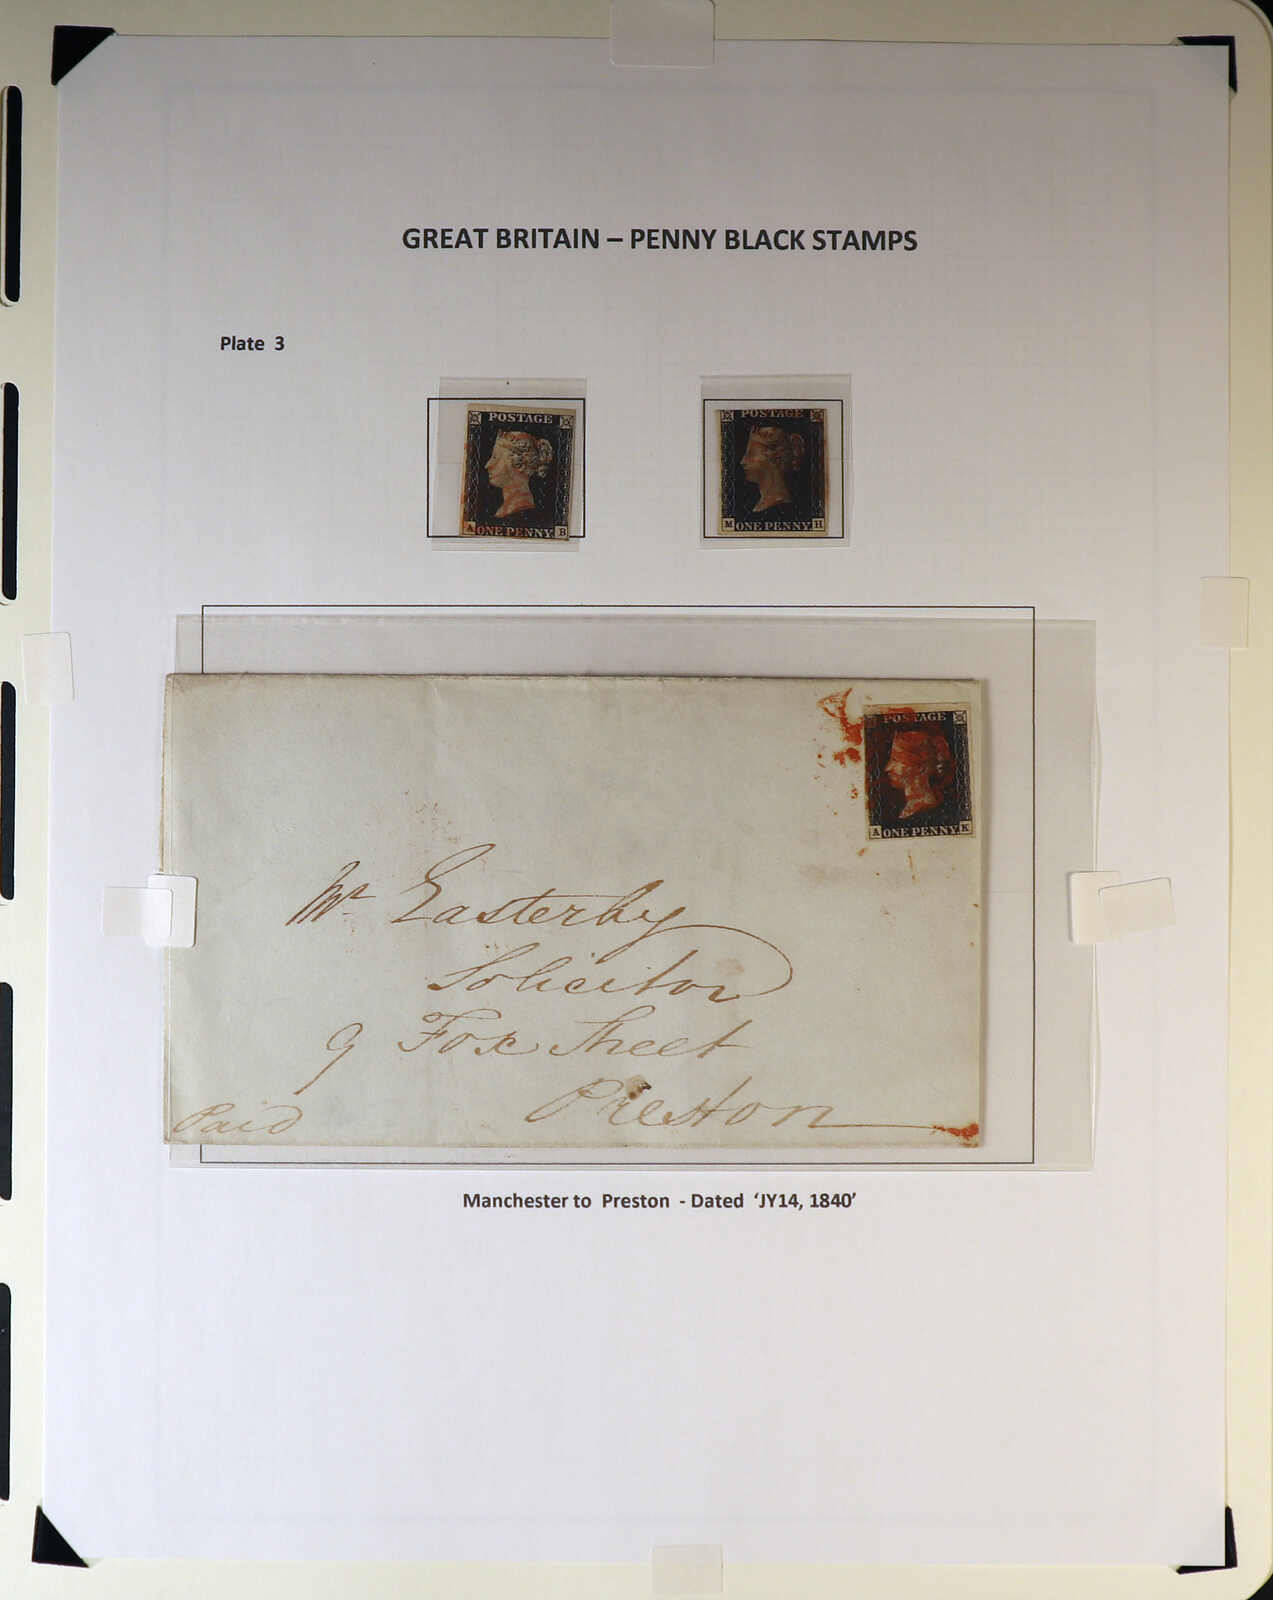 GREAT BRITAIN – PENNY BLACK STAMPS
Plate 3
POSTAGE
A ONE PENNY B
POSTAGE
M ONE PENNY H
POSTAGE
A ONE PENNY K
Mr Easterby
Solicitor
9 Fox Street
Preston
Paid
Manchester to Preston - Dated ‘JY14, 1840’